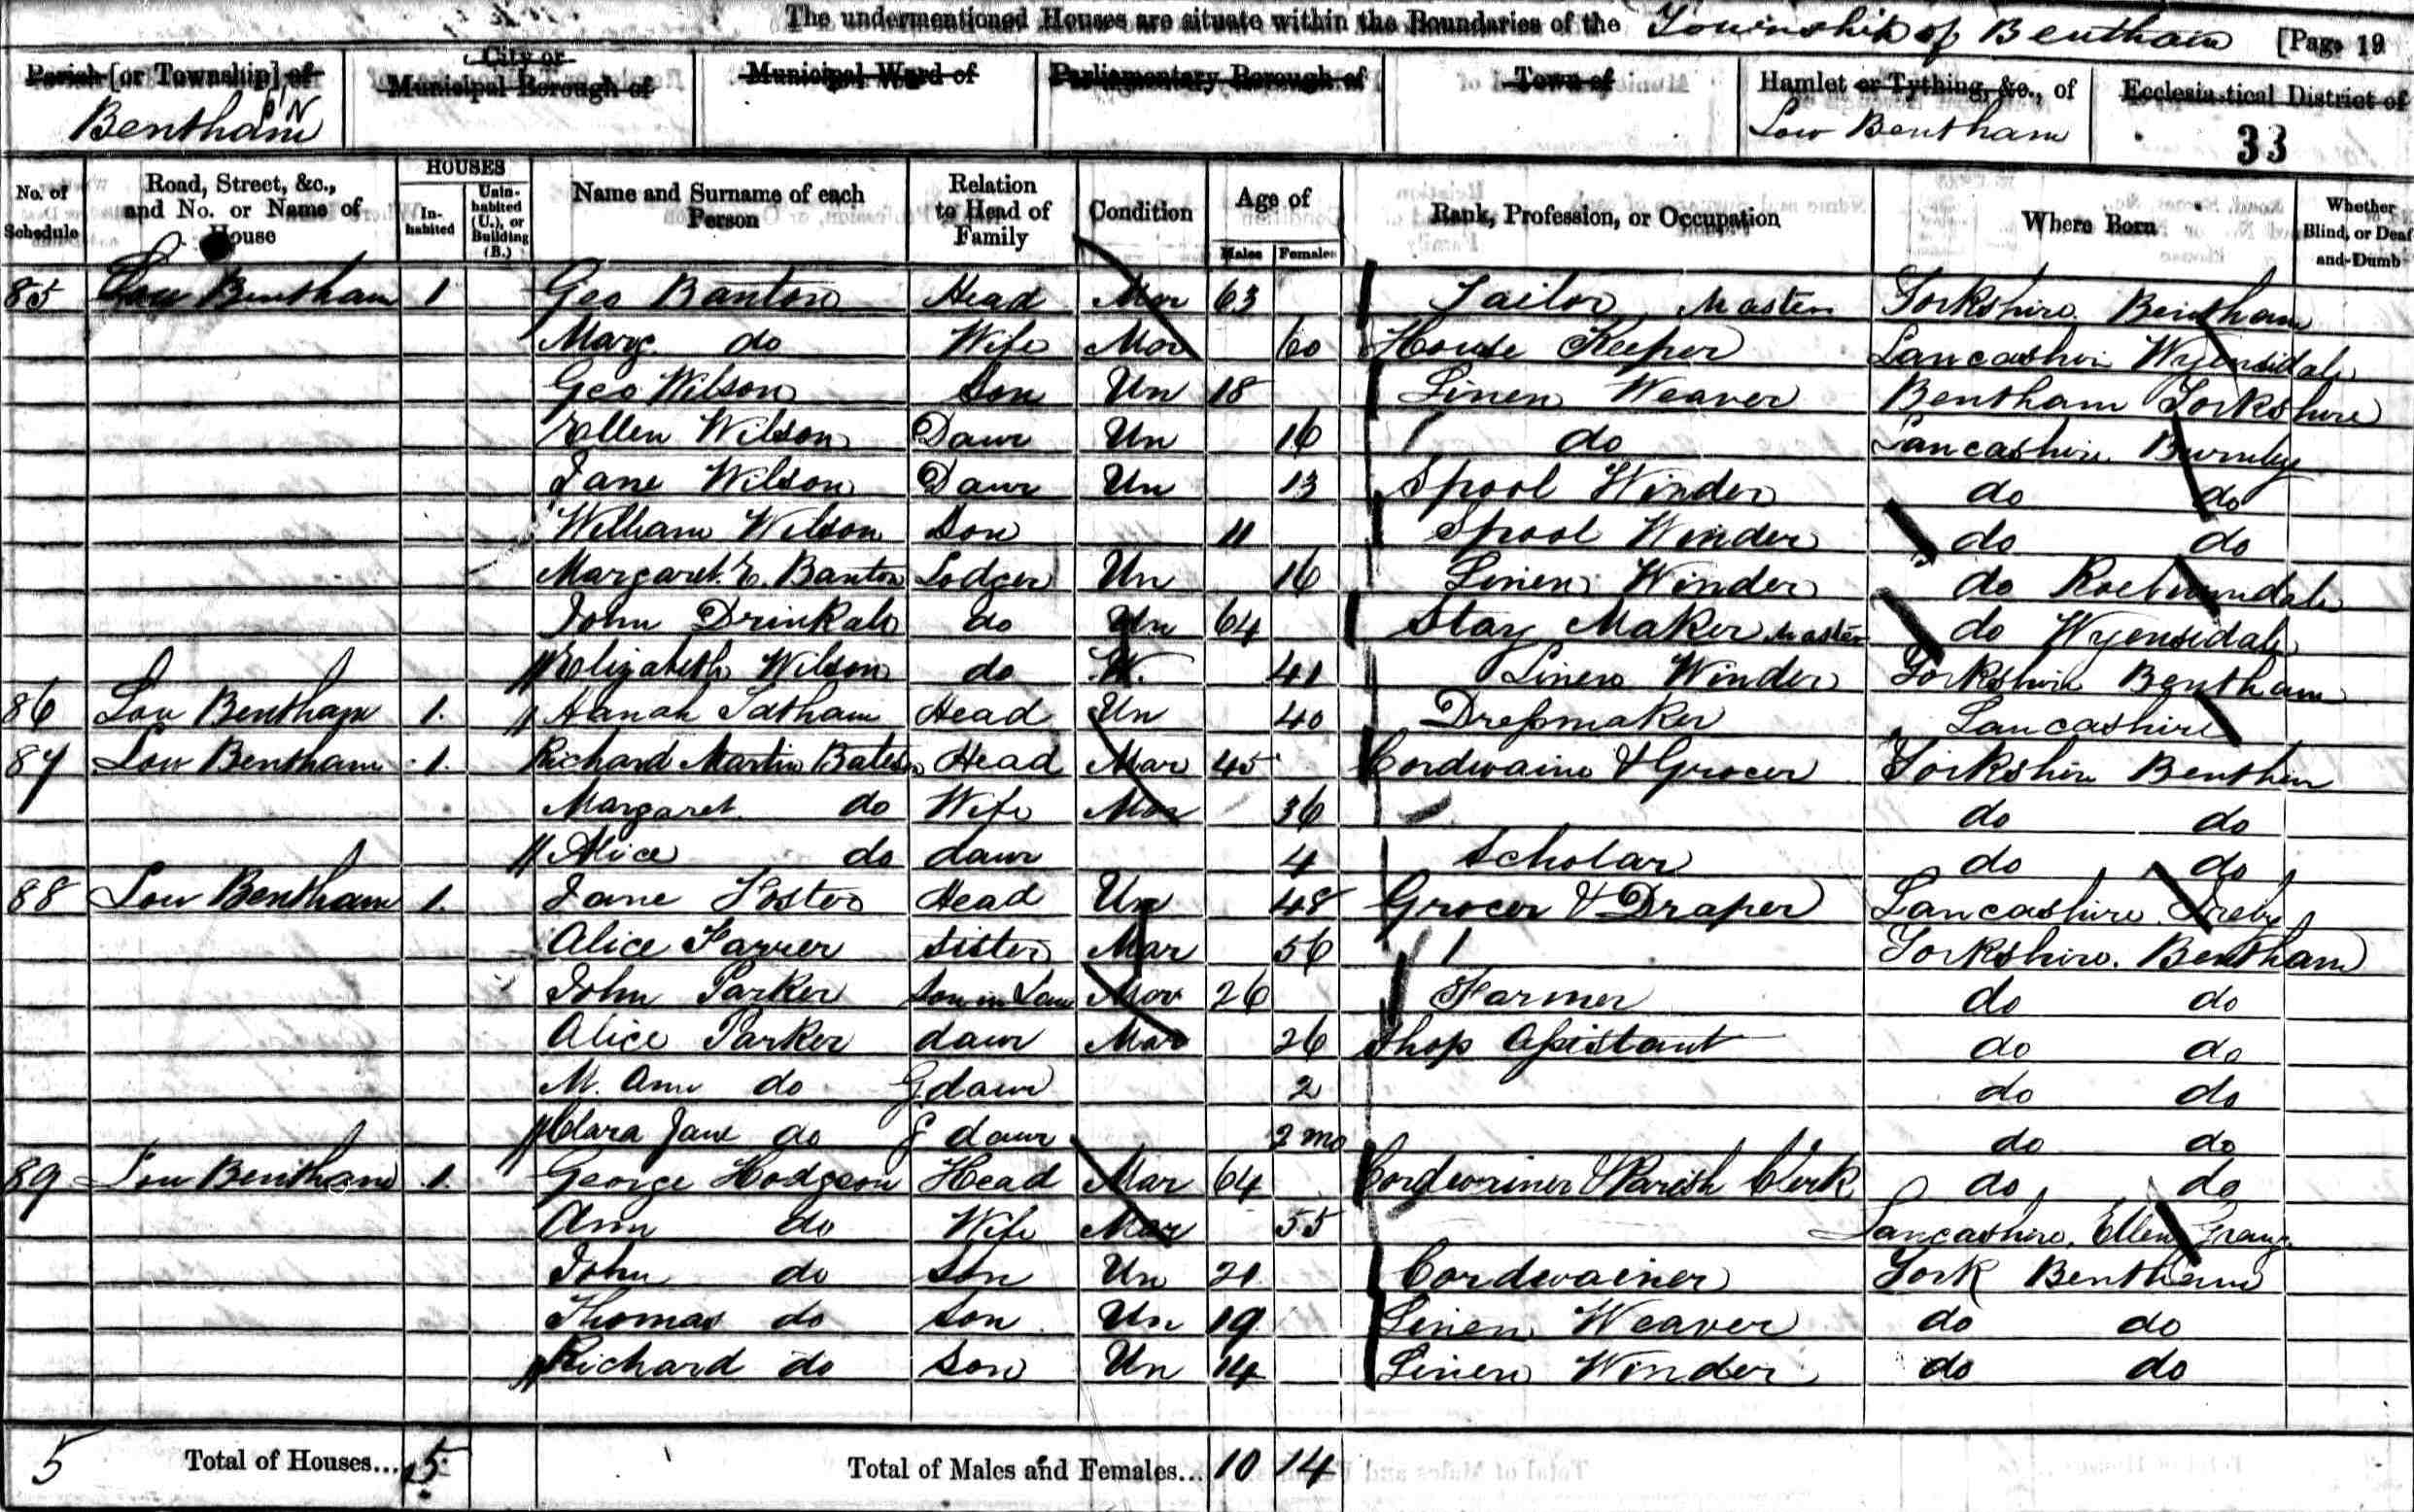 The undermentioned Houses are situate within the Boundaries of the Township of Bentham [Page 19
Parish [or Township] of Bentham
City or Municipal Borough of
Municipal Ward of
Parliamentary Borough of
Town of
Hamlet or Tything, &c., of Low Bentham
Ecclesiastical District of
33
No. of Schedule
Road, Street, &c., and No. or Name of House
HOUSES
In-habited
Unin-habited (U.), or Building (B.)
Name and Surname of each Person
Relation to Head of Family
Condition
Age of
Males Females
Rank, Profession, or Occupation
Where Born
Whether Blind, or Deaf-and-Dumb
85 Low Bentham 1 Geo Banton Head Mar 63 Tailor Master Yorkshire Bentham
Marg. do Wife Mar 60 House Keeper Lancashire Wyersdale
Geo Wilson Son Un 18 Linen Weaver Bentham Yorkshire
Ellen Wilson Daur Un 16 do Lancashire Burnley
Jane Wilson Daur Un 13 Spool Winder do do
William Wilson Son 11 Spool Winder do do
Margaret E. Banton Lodger Un 16 Linen Winder do Roeburndale
John Drinkall do Un 64 Stay Maker Master do Wyersdale
Elizabeth Wilson do W. 41 Linen Winder Yorkshire Bentham
86 Low Bentham 1. Hanah Tatham Head Un 40 Dressmaker Lancashire
87 Low Bentham 1. Richard Martin Bateson Head Mar 45 Cordwainer & Grocer Yorkshire Bentham
Margaret do Wife Mar 36 do do
Alice do daur 4 Scholar do do
88 Low Bentham 1. Jane Foster Head Un 48 Grocer & Draper Lancashire Ireby
Alice Farrer Sister Mar 56 Yorkshire. Bentham
John Parker Son in Law Mar 26 Farmer do do
Alice Parker daur Mar 26 Shop Assistant do do
M. Ann do G daur 2 do do
Clara Jane do G daur 2 mo do do
89 Low Bentham 1. George Hodgson Head Mar 64 Cordwainer & Parish Clerk do do
Ann do Wife Mar 55 Lancashire, Ellen Grange
John do Son Un 21 Cordwainer York Bentham
Thomas do Son Un 19 Linen Weaver do do
Richard do Son Un 14 Linen Winder do do
5 Total of Houses... 5 Total of Males and Females... 10 14